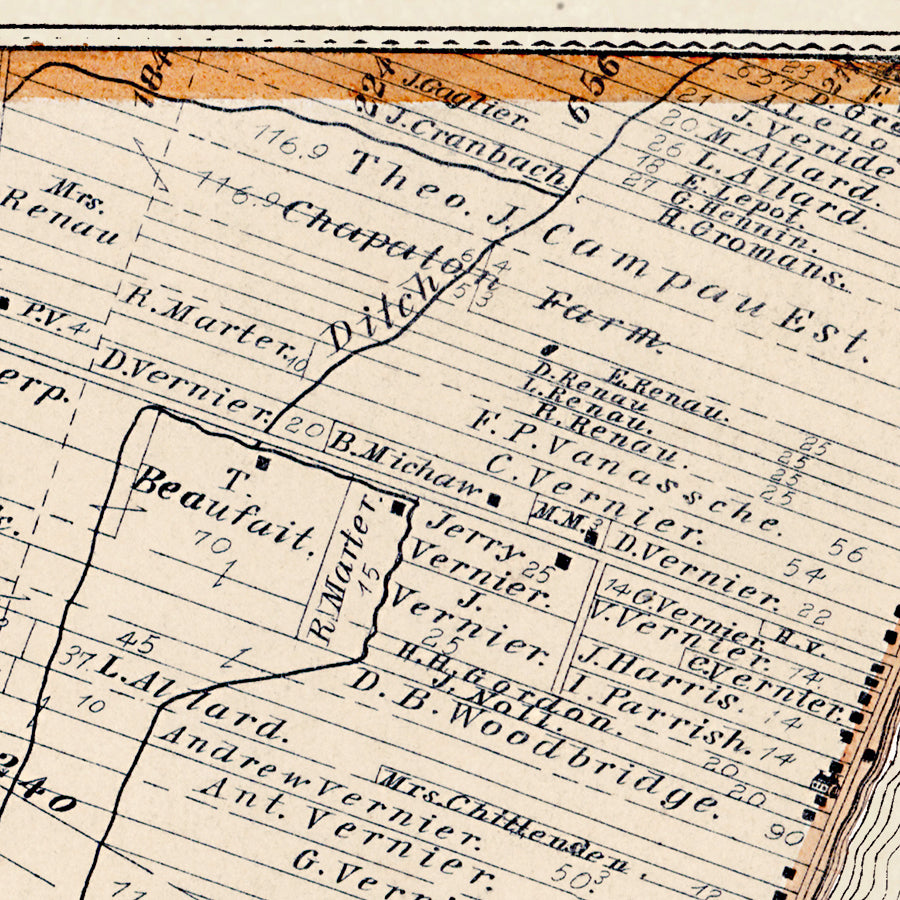 184
224
J. Gaglier.
656
637
23
21
A. Leno
J. Cranbach
20
J. Veride
116.9
26
M. Allard.
Theo. J. Campau Est.
18
L. Allard.
116.9
27
E. Lepot.
Chapaton Farm.
G. Hennin.
H. Gromans.
Mrs.
Renau
Ditch
53
P.V. 4
R. Marter. 10
D. Vernier. 20
erp.
E. Renau.
D. Renau
L. Renau.
R. Renau.
25
F. P. Vanassche.
56
B. Michaw
C. Vernier.
54
T.
Beaufait.
70
R. Marter.
15
M.M. 3
D. Vernier.
22
Jerry
Vernier.
25
J.
Vernier.
25
14 G. Vernier.
H. V.
V. Vernier.
14
C. Vernier.
J. Harris.
14
I. Parrish.
14
H. H. Gordon.
20
J. Noll.
20
D. B. Woodbridge.
90
45
37
L. Allard.
10
240
Andrew Vernier.
Mrs. Chittenden
50.3
12
Ant. Vernier.
G. Vern